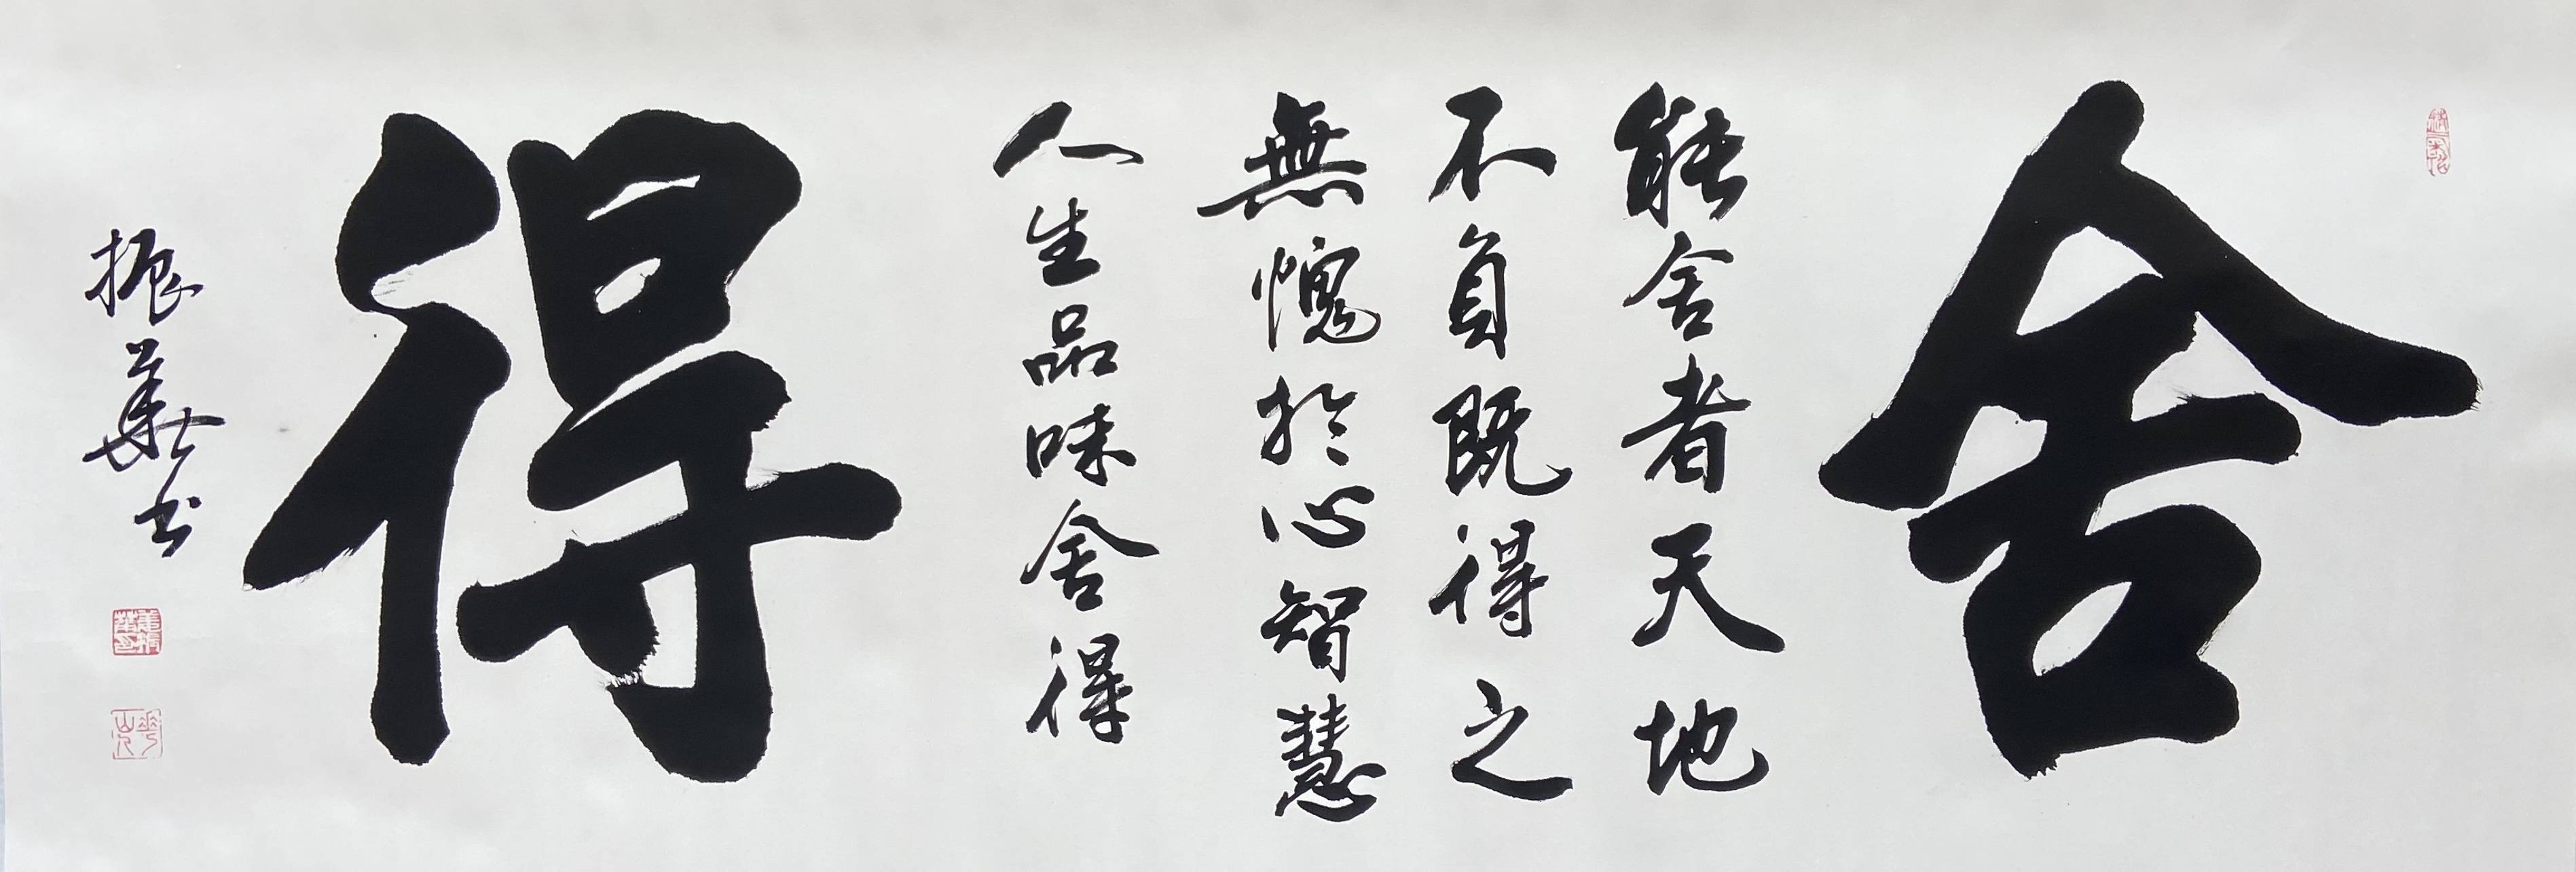 舍
能舍者天地
不負既得之
無愧於心智慧
人生品味舍得
得
振華书